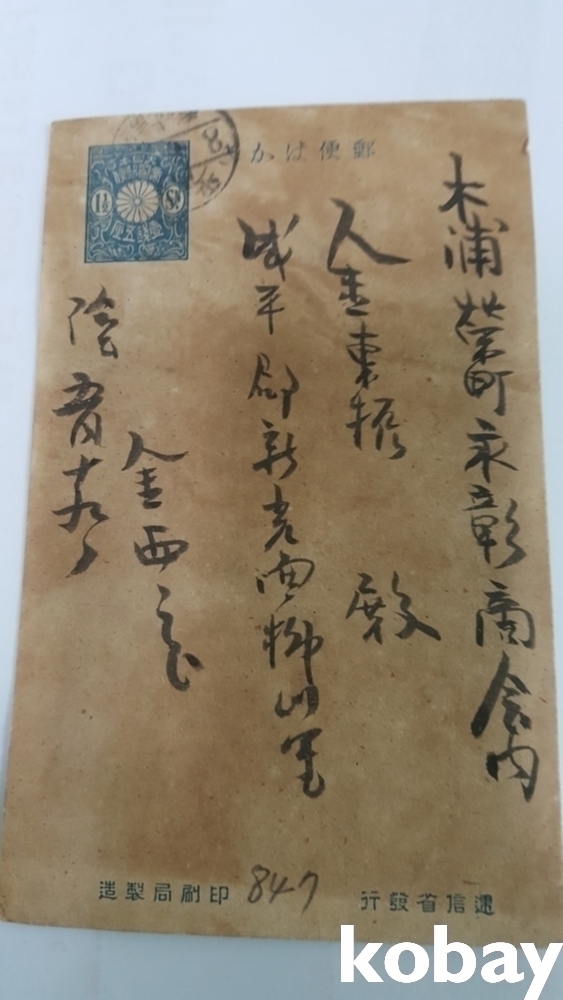 郵便はか
木浦榮町永彰商会内
金東振 殿
咸平郡新光面柳川里
金西
陰 月十九日
1½ Sn
壹錢五厘
遞信省發行
847
印刷局製造
kobay